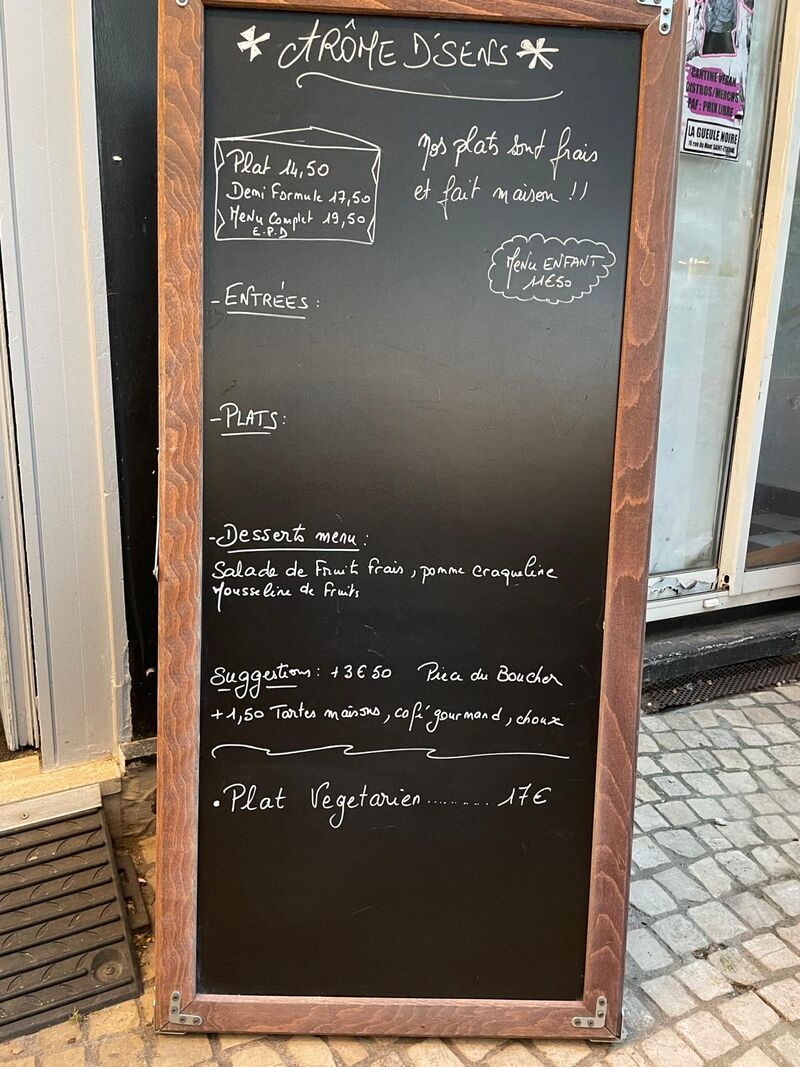 * ARÔME D'SENS *
Plat 14,50
Demi Formule 17,50
Menu Complet 19,50
E.P.D
Nos plats sont frais
et fait maison !!
Menu ENFANT
11€50
- ENTRÉES :
- PLATS :
- Desserts menu :
Salade de Fruits frais, pomme craqueline
Mousseline de Fruits
Suggestions : +3€50 Pièce du Boucher
+1,50 Tartes maisons, café gourmand, choux
• Plat Vegetarien .......... 17€
CANTINE VEGAN
DISTROS/MERCHS
PAF : PRIX LIBRE
LA GUEULE NOIRE